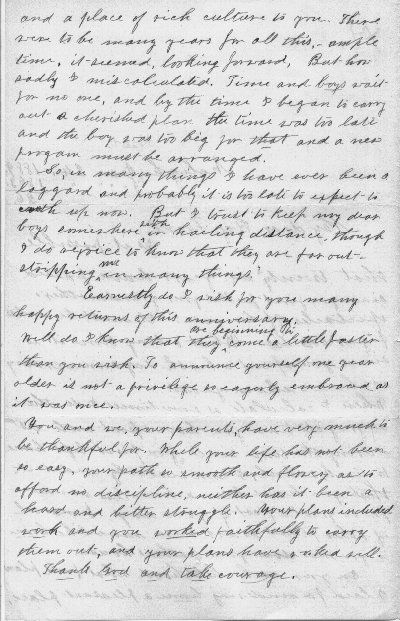 and a place of rich culture to you. There
were to be many years for all this, - ample
time, it seemed, looking forward, But how
sadly I miscalculated. Time and boys wait
for no one, and by the time I began to carry
out a cherished plan the time was too late
and the boy was too big for that and a new
program must be arranged.
So, in many things I have ever been a
laggard and probably it is too late to expect to
catch up now. But I trust to keep my dear
boys somewhere with in hailing distance, though
I do rejoice to know that they are far out-
stripping me in many things.
Earnestly do I wish for you many
happy returns of this anniversary.
Well do I know that they are beginning to come a little faster
than you wish. To announce yourself one year
older is not a privilege so eagerly embraced as
it was once.
You and we, your parents, have very much to
be thankful for. While your life has not been
so easy, your path so smooth and flowery as to
afford no discipline, neither has it been a
hard and bitter struggle. Your plans included
work and you worked faithfully to carry
them out, and your plans have worked well.
Thank God and take courage.